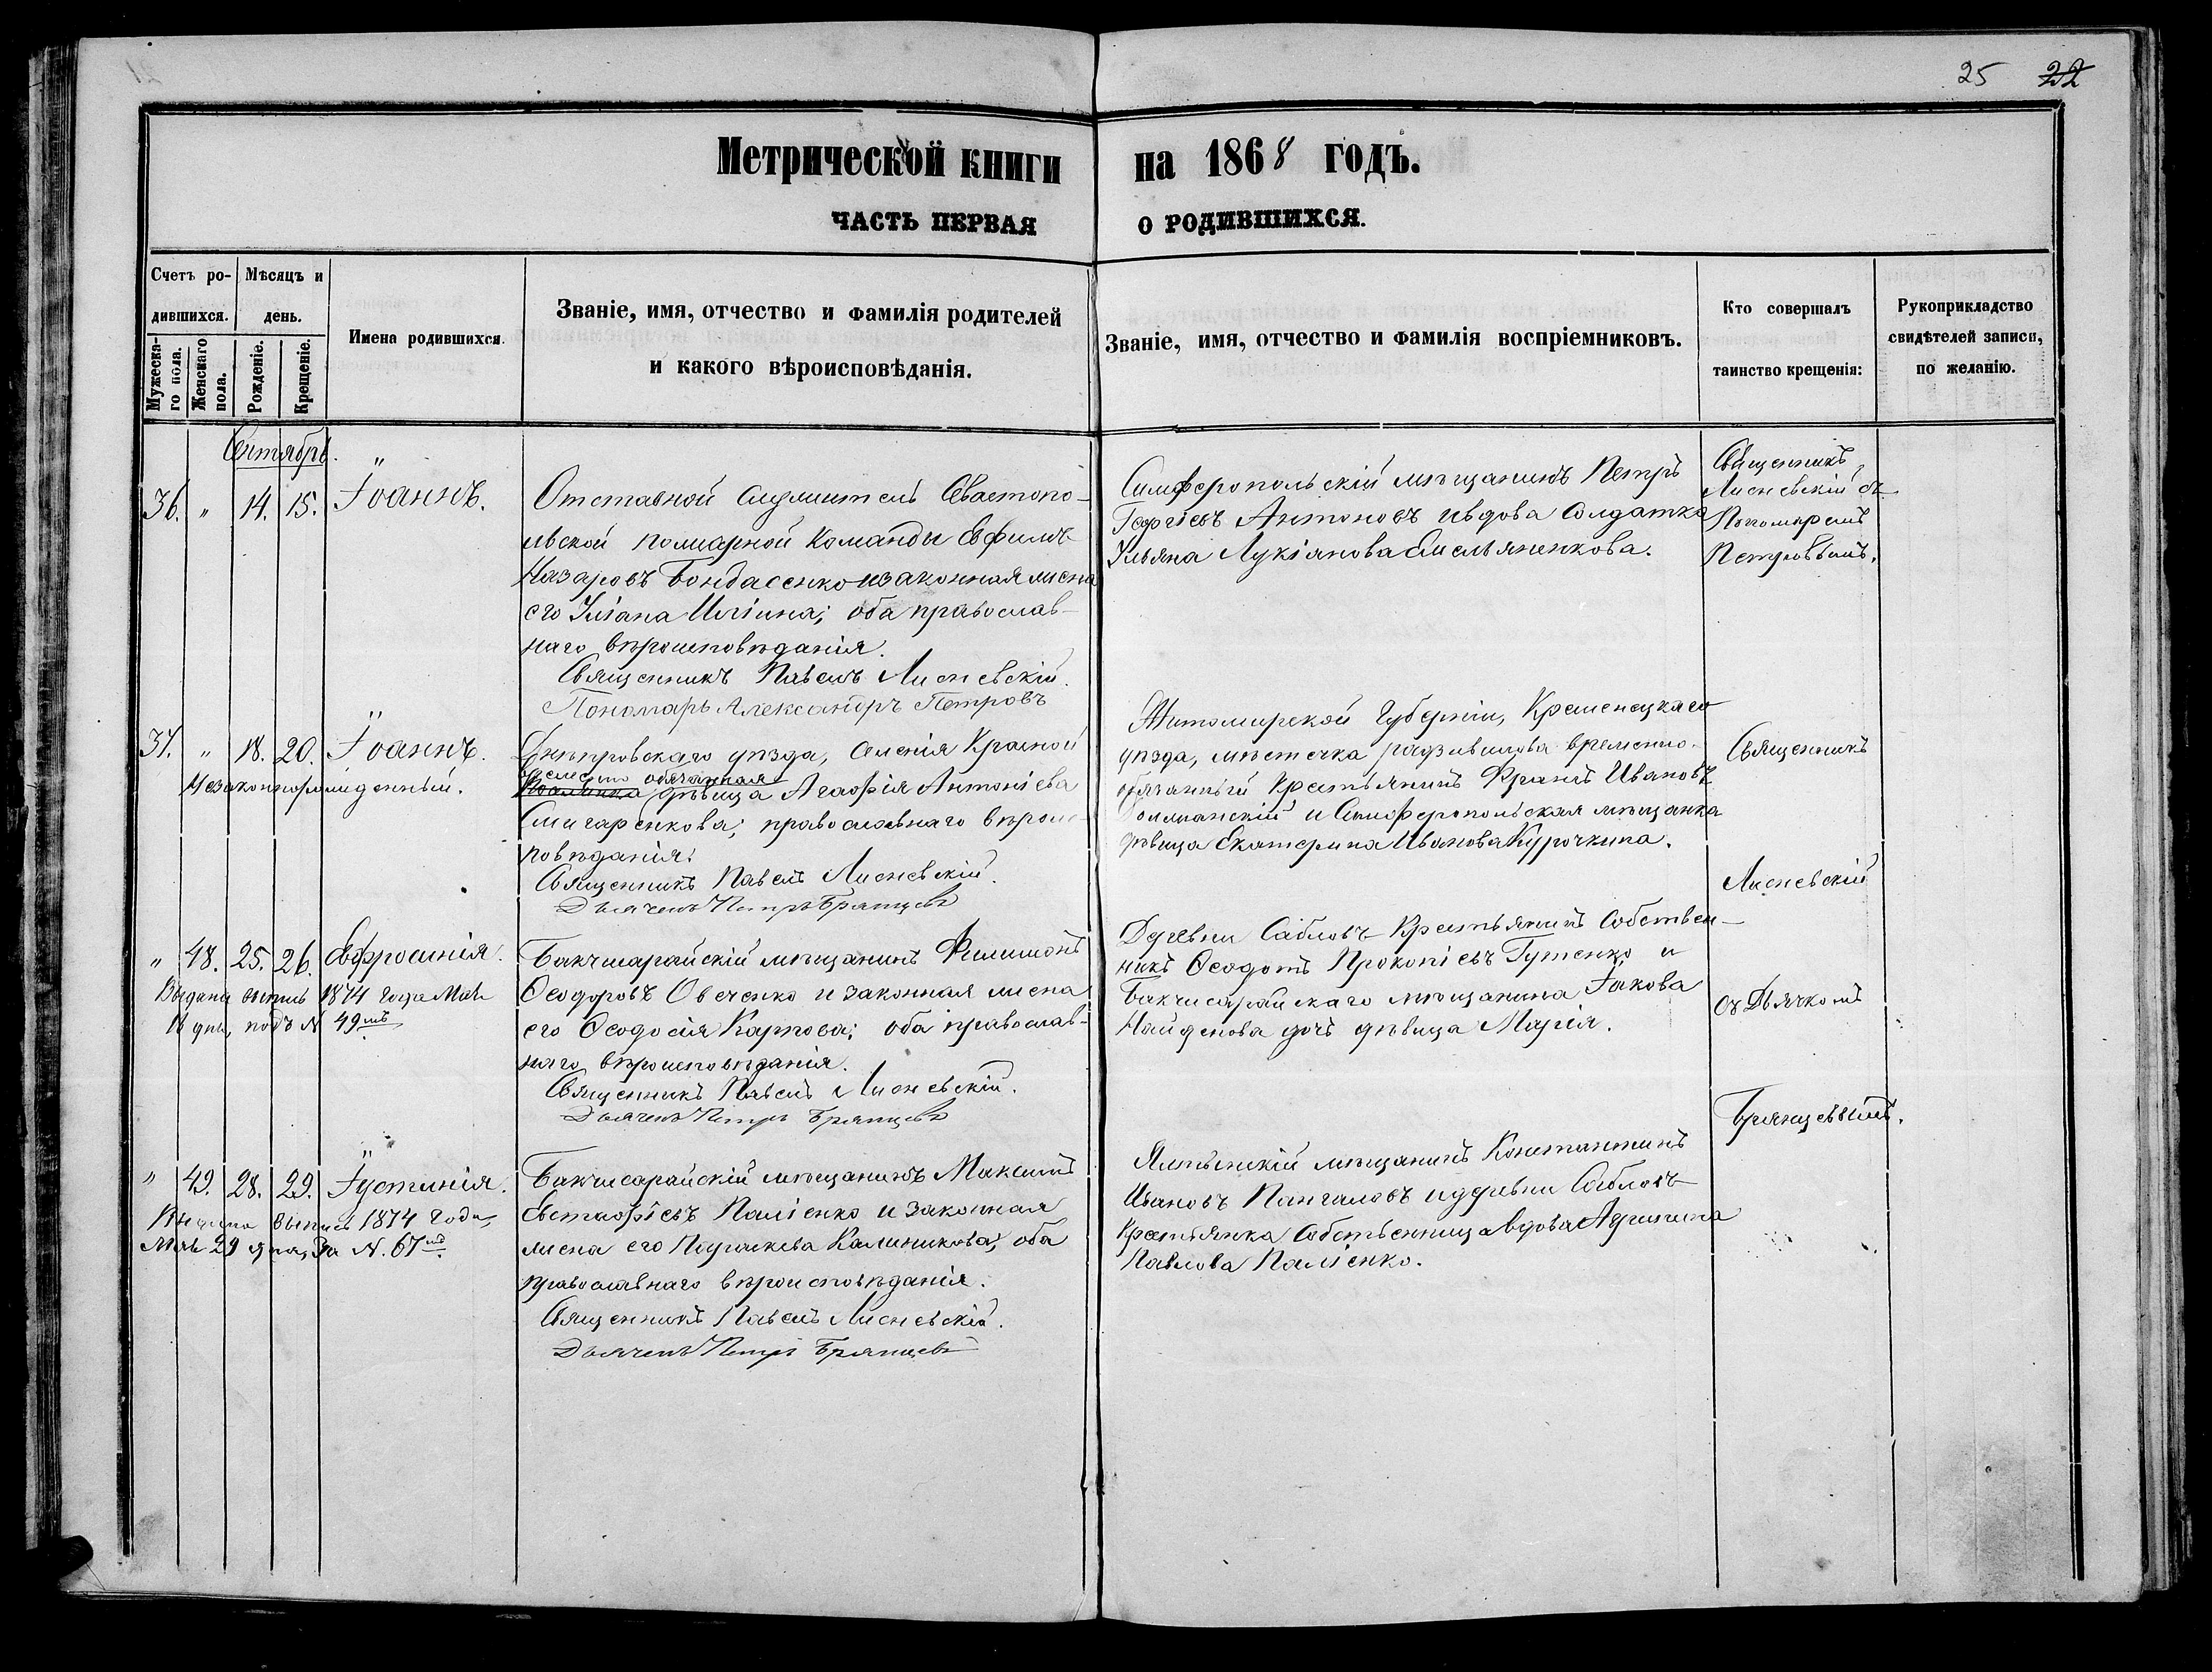 25 22
Метрической книги на 1868 годъ.
ЧАСТЬ ПЕРВАЯ О РОДИВШИХСЯ.
Счетъ ро-
дившихся.
Мужеска-
го пола.
Женскаго
пола.
Мѣсяцъ и
день.
Рожденіе.
Крещеніе.
Имена родившихся.
Званіе, имя, отчество и фамилія родителей
и какого вѣроисповѣданія.
Званіе, имя, отчество и фамилія воспріемниковъ.
Кто совершалъ
таинство крещенія:
Рукоприкладство
свидѣтелей записи,
по желанію.
Сентябрь.
36. „ 14. 15. Іоаннъ.
Отставной служитель Севастопо-
льской полиарной команды Евфимъ
Назаровъ Бондасенко и законная жена
его Уліана Иліина; оба православ-
наго вѣроисповѣданія.
Священникъ Павелъ Лисневскій.
Пономарь Александръ Петровъ
Симферопольскій мѣщанинъ Петръ
Георгіевъ Антоновъ и вдова солдатка
Ульяна Лукіянова Емельяненкова.
Священникъ
Лисневскій съ
Пономаремъ
Петровымъ.
37. „ 18. 20. Іоаннъ.
Незаконнорожденный.
Днѣпровскаго уѣзда, селенія Красной
временно обязанная
дѣвица Агафія Антоніева
Слигаренкова; православнаго вѣроис-
повѣданія.
Священникъ Павелъ Лисневскій.
Дьячекъ Петръ Брянцевъ
Житомирской Губерніи, Кременецкаго
уѣзда, мѣстечка радзивилова временно-
обязанный Крестьянинъ Францъ Ивановъ
и Симферопольская мѣщанка
дѣвица Екатерина Иванова Курочкина.
Священникъ
Лисневскій
съ Дьячкомъ
Брянцевымъ.
„ 48. 25. 26. Евфросинія.
Выдана выпись 1874 года Мая
18 дня, подъ N 49мъ
Бакчисарайскій мѣщанинъ Филимонъ
Ѳеодоровъ Овченко и законная жена
его Ѳеодосія Карпова; оба православ-
наго вѣроисповѣданія.
Священникъ Павелъ Лисневскій.
Дьячекъ Петръ Брянцевъ
Деревни Сабловъ Крестьянинъ Собствен-
никъ Ѳеодотъ Прокопіевъ Гутенко и
Бакчисарайскаго мѣщанина Іакова
Найденова дочь дѣвица Марія.
„ 49. 28. 29. Іустинія.
выпись 1874 года,
Мая 29 дня, За N. 67мъ
Бакчисарайскій мѣщанинъ Максимъ
Евстафіевъ Паліенко и законная
жена его Параскева Калиникова; оба
православнаго вѣроисповѣданія.
Священникъ Павелъ Лисневскій.
Дьячекъ Петръ Брянцевъ
Ялтинскій мѣщанинъ Константинъ
Ивановъ Пангаловъ и деревни Сабловъ
Крестьянка Собственница вдова Агрипина
Павлова Паліенко.